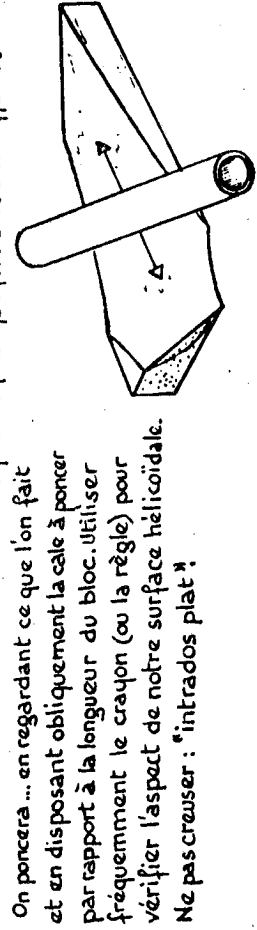 On poncera... en regardant ce que l'on fait
et en disposant obliquement la cale à poncer
par rapport à la longueur du bloc. Utiliser
fréquemment le crayon (ou la règle) pour
vérifier l'aspect de notre surface hélicoïdale.
Ne pas creuser : "intrados plat"!